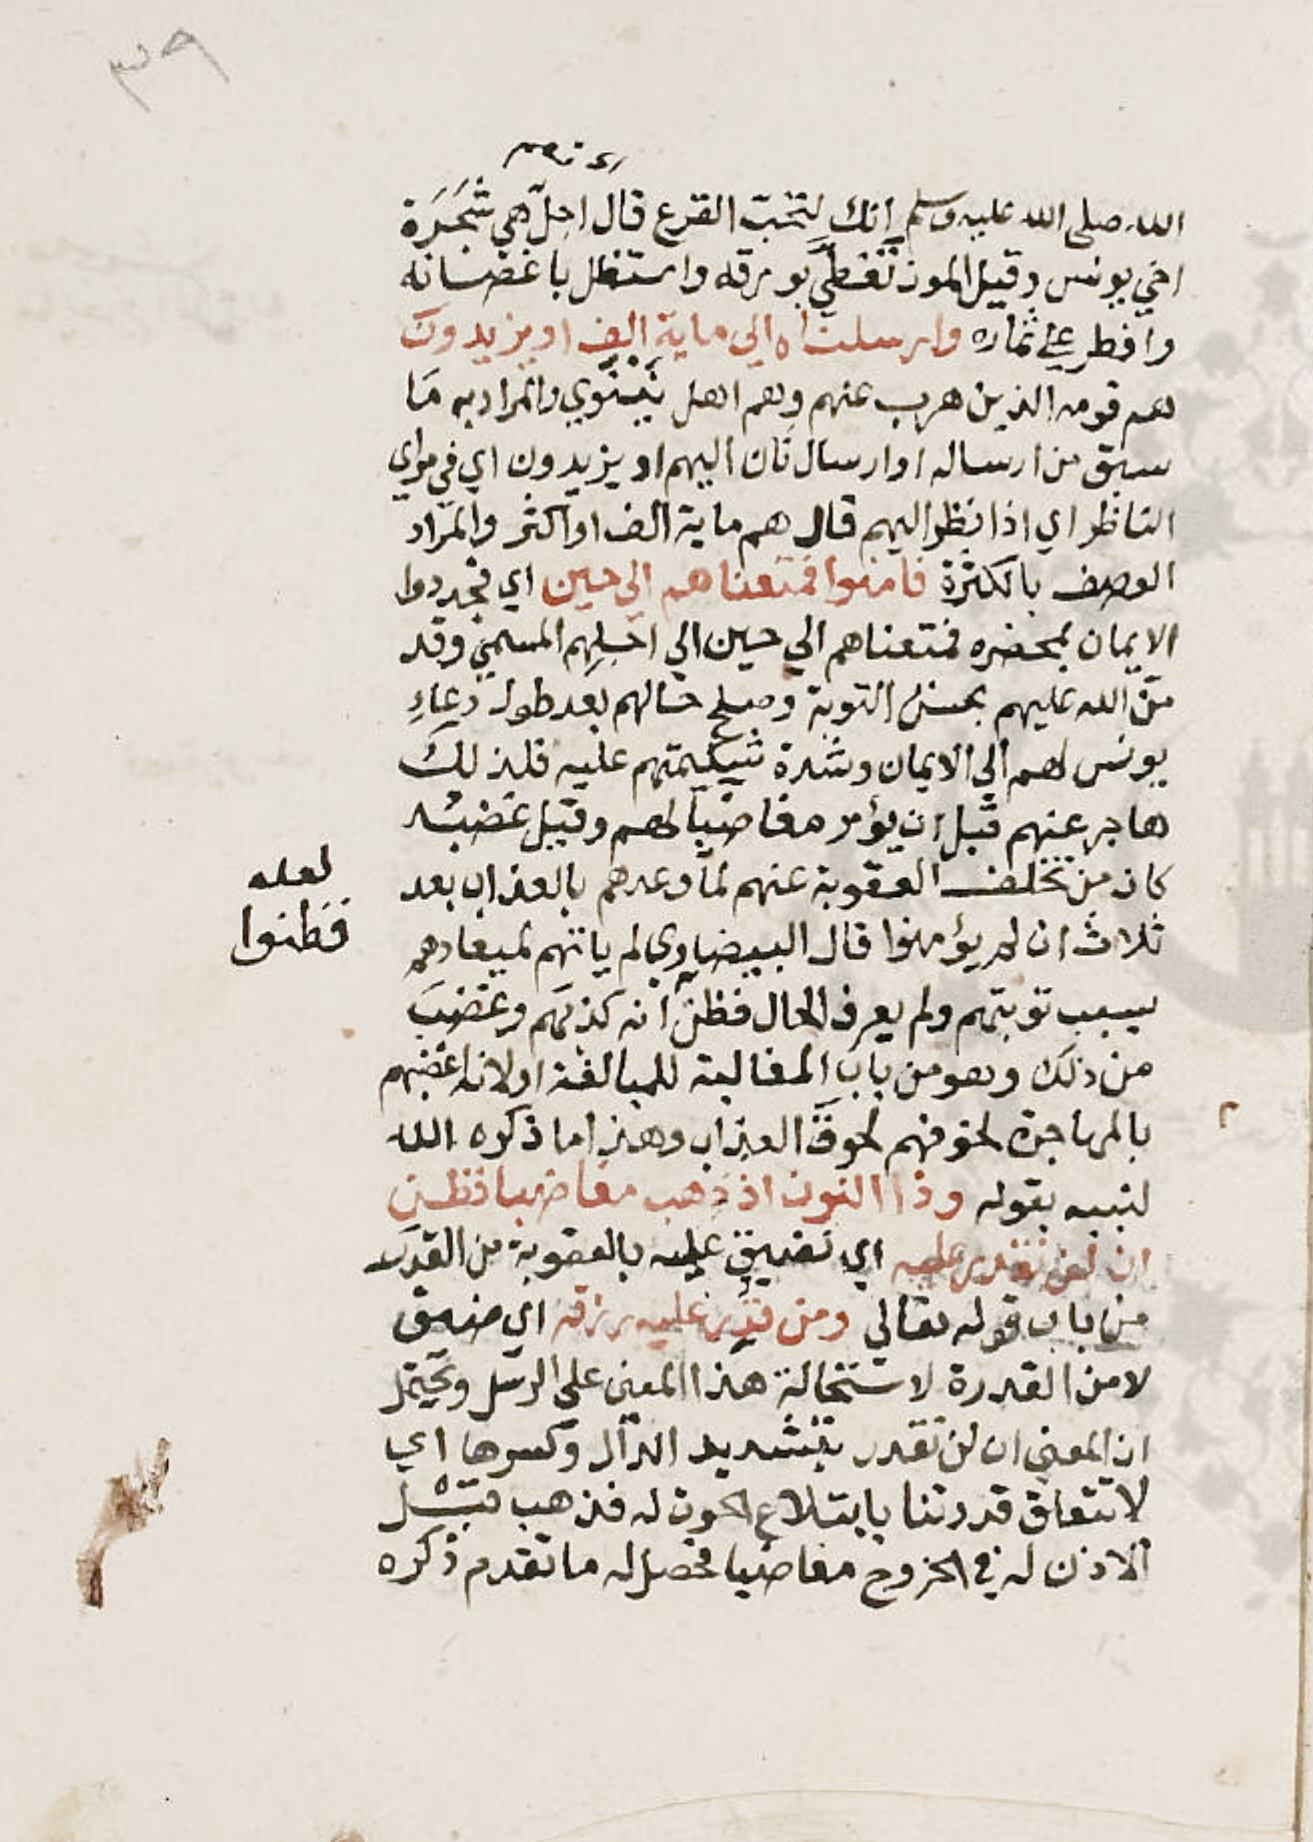 ٣٩
الله صلى الله عليه وسلم انك لتحب القرع قال اجل هي شجرة
اخي يونس وقيل الموز تغطي بورقه واستظل باغصانه
وافطر على ثماره وارسلناه الي ماية الف او يزيدون
هم قومه الذين هرب عنهم وهم اهل نينوي والمراد به ما
سبق من ارساله او ارسال ثان اليهم او يزيدون اي في مراي
الناظر اي اذا نظر اليهم قال هم ماية الف او اكثر والمراد
الوصف بالكثرة فامنوا فمتعناهم الي حين اي فجددوا
الايمان بمحضره فمتعناهم الي حين الي اجلهم المسمي وقد
من الله عليهم بحسن التوبة وصلح حالهم بعد طول دعاء
يونس لهم الي الايمان وشدة شكيمتهم عليه فلذلك
هاجر عنهم قبل ان يؤمر مغاضبا لهم وقيل غضبه
كان من تخلف العقوبة عنهم لما وعدهم بالعذاب بعد
ثلاث ان لم يؤمنوا قال البيضاوي لم ياتهم لميعادهم
لعله
فظنوا
بسبب توبتهم ولم يعرف الحال فظن انه كذبهم وغضب
من ذلك وهو من باب المغالبة للمبالغة او لانه اغضبهم
بالمهاجرة لخوفهم لحوق العذاب وهذا ما ذكره الله
لنبيه بقوله وذا النون اذ ذهب مغاضبا فظن
ان لن نقدر عليه اي نضيق عليه بالعقوبة من القدر
من باب قوله تعالي ومن قدر عليه رزقه اي ضيق
لا من القدرة لاستحالة هذا المعني على الرسل ويحتمل
ان المعني ان لن نقدر بتشديد الدال وكسرها اي
لا تتعلق قدرتنا بابتلاع الحوت له فذهب قبل
الاذن له في الخروج مغاضبا فحصل له ما تقدم ذكره